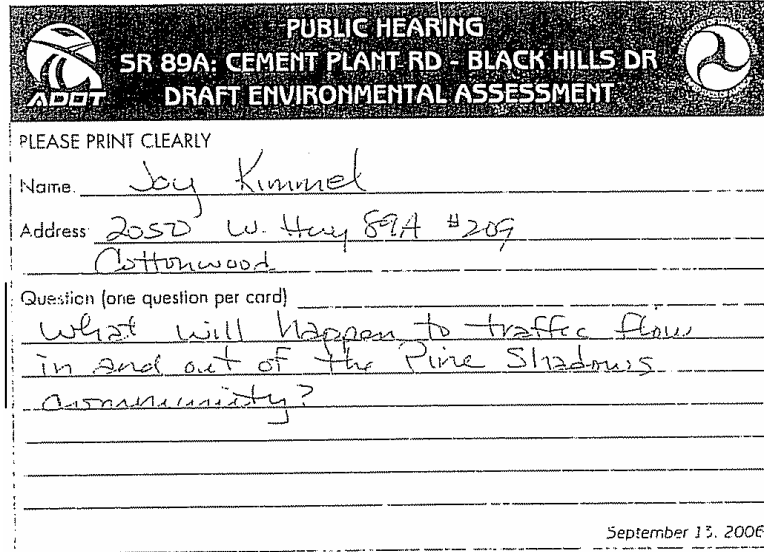 PUBLIC HEARING
SR 89A: CEMENT PLANT RD - BLACK HILLS DR
DRAFT ENVIRONMENTAL ASSESSMENT
ADOT
PLEASE PRINT CLEARLY
Name Joy Kimmel
Address 2050 W. Hwy 89A #209
Cottonwood
Question (one question per card)
What will happen to traffic flow
in and out of the Pine Shadows
community?
September 13, 2006